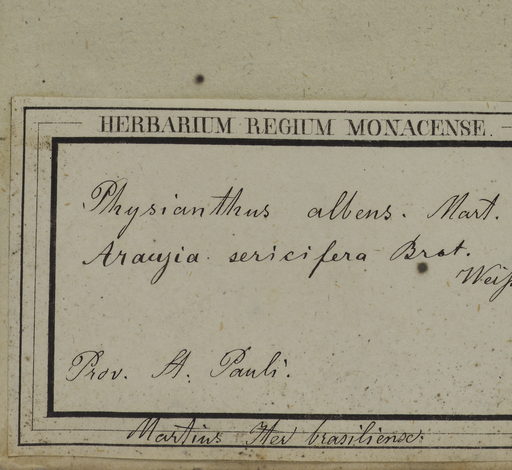 HERBARIUM REGIUM MONACENSE.
Physianthus albens. Mart.
Araujia sericifera Brot.
Prov. St. Pauli.
Martius Iter brasiliense.